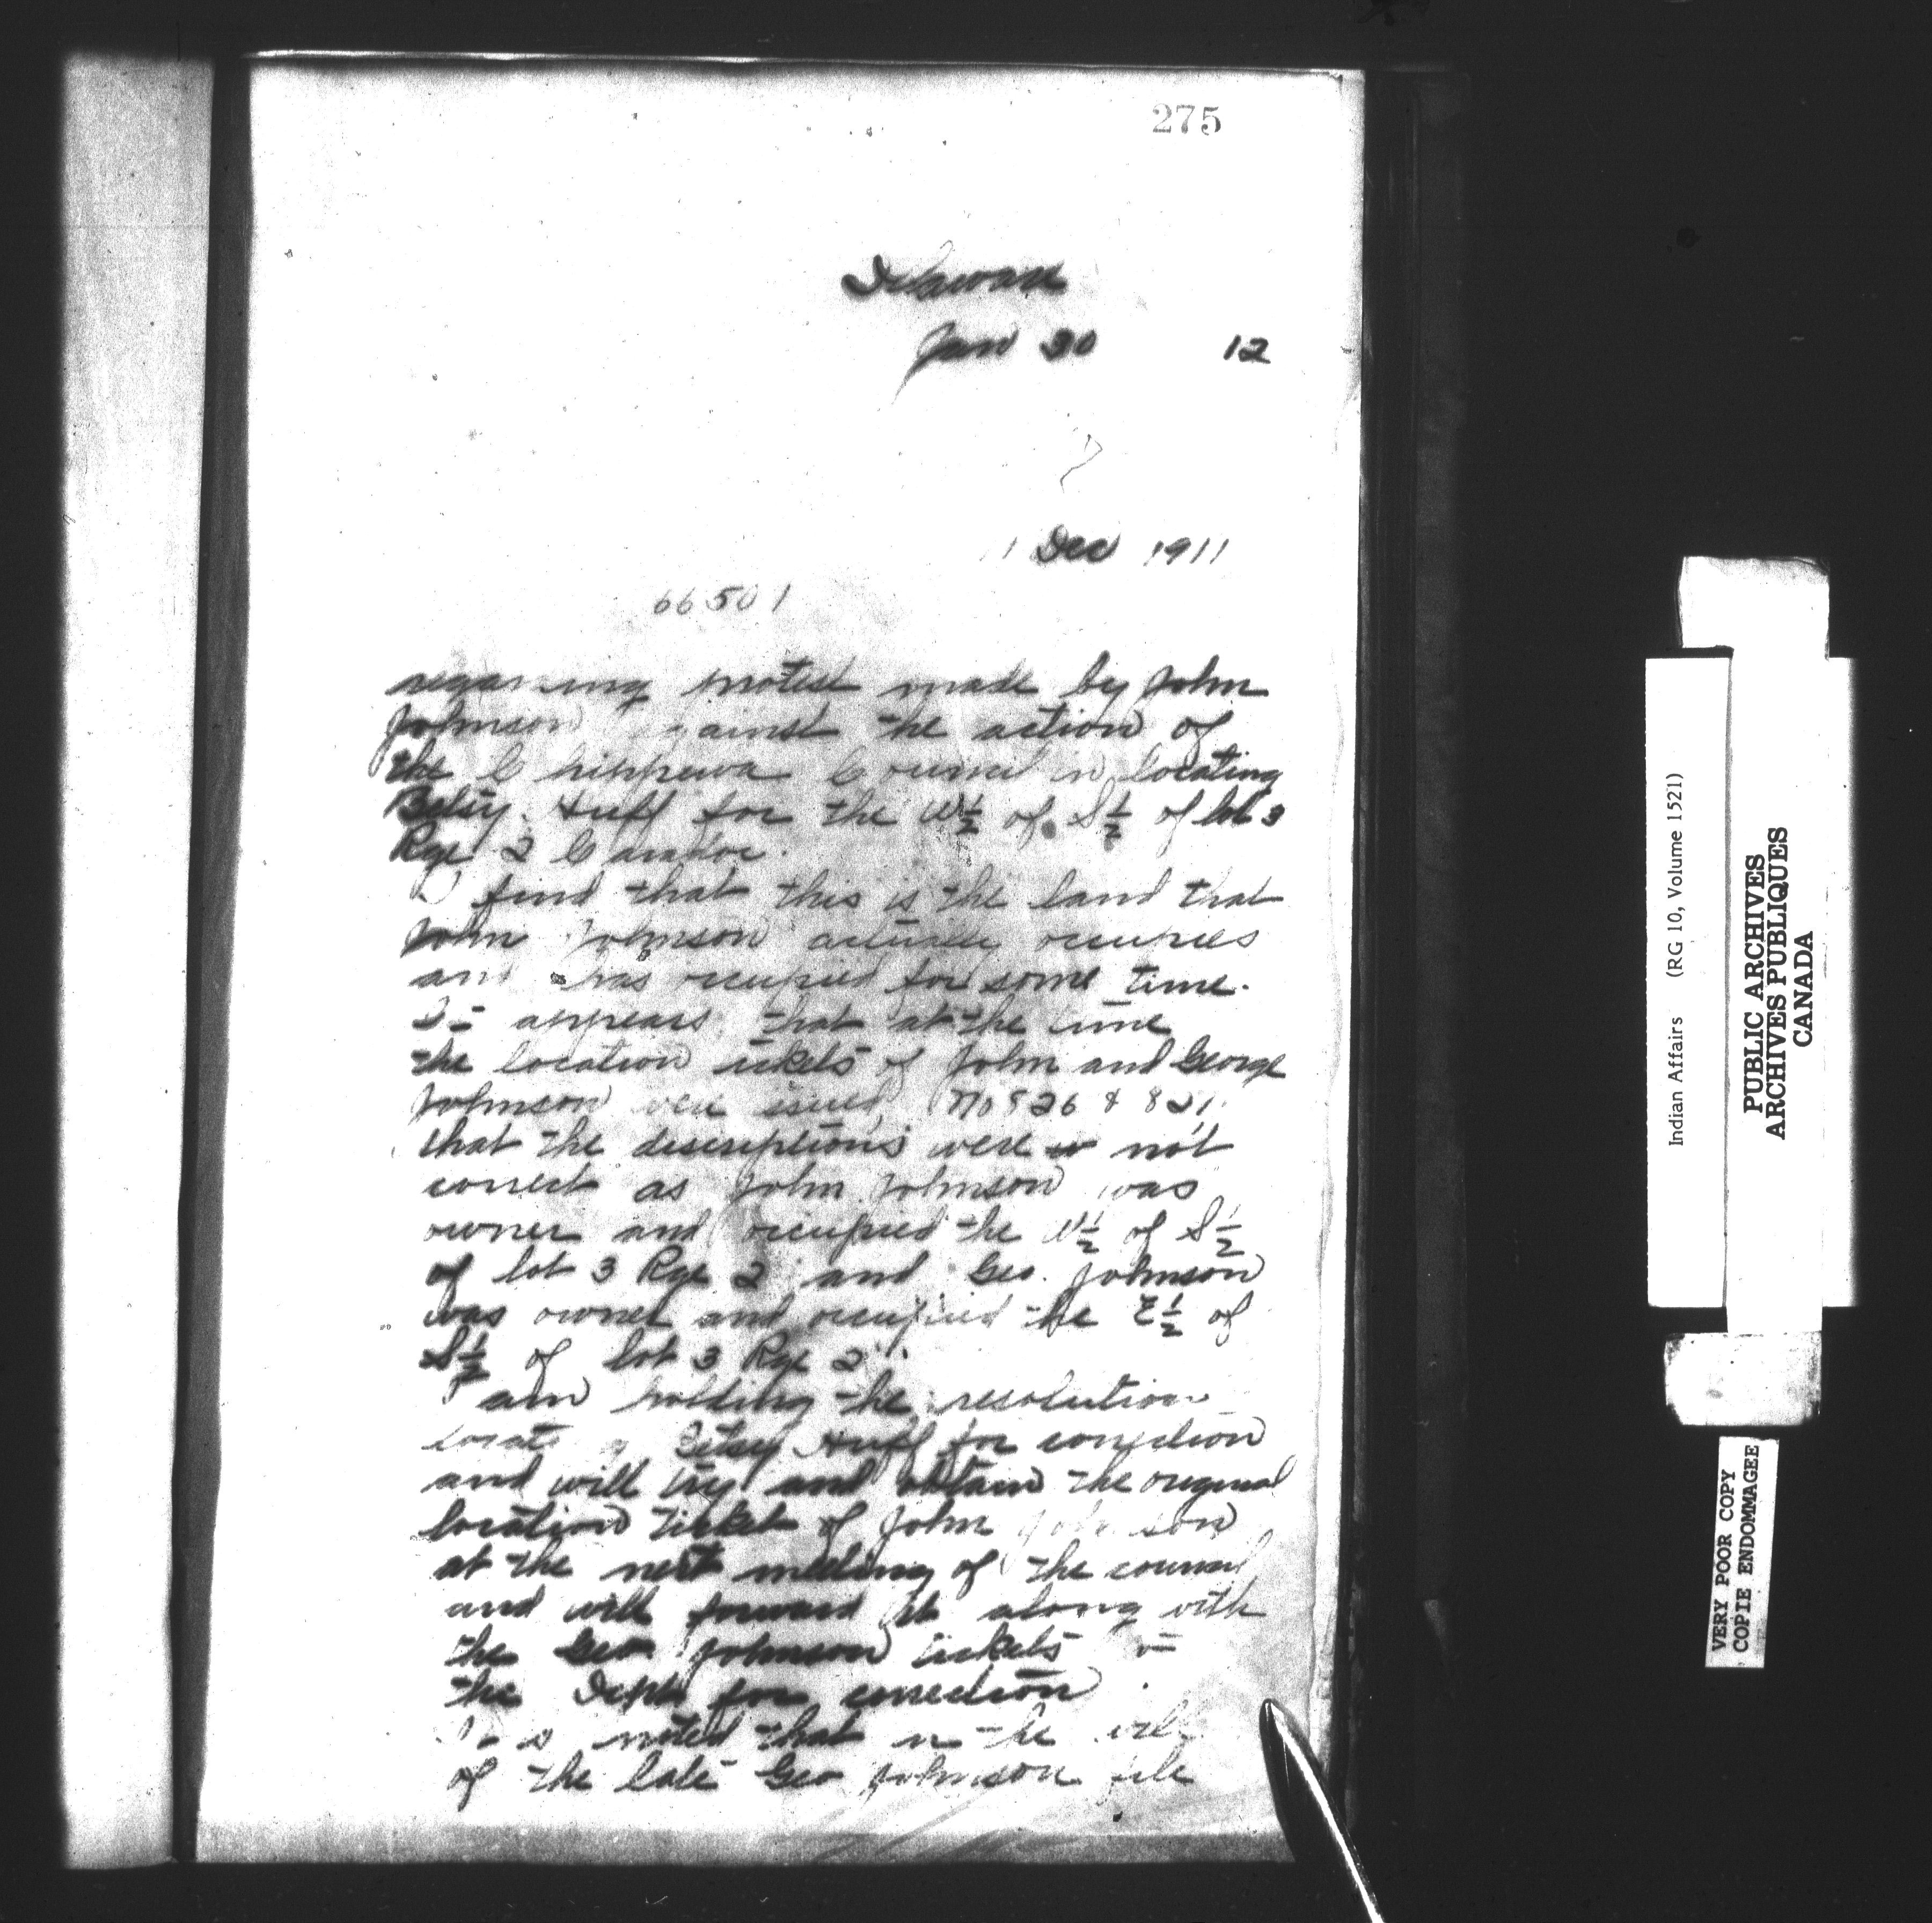 275
Delaware
Jan 30 12
11 Dec 1911
66501
regarding protest made by John
Johnson against the action of
the Chippewa Council in locating
Betsy Huff for the W½ of S½ of lot 3
Rge 2 Caradoc.
I find that this is the land that
John Johnson actually occupies
and has occupied for some time.
It appears that at the time
the location tickets of John and George
Johnson were issued No 826 & 827
that the descriptions were not
correct as John Johnson was
owner and occupied the W½ of S½
of lot 3 Rge 2 and Geo. Johnson
was owner and occupied the E½ of
S½ of lot 3 Rge 2.
I am holding the resolution
locating Betsy Huff for correction
and will try and obtain the original
location ticket of John Johnson
at the next meeting of the council
and will forward it along with
the Geo Johnson tickets to
the Dept for correction.
It is noted that in the will
of the late Geo Johnson file
Indian Affairs (RG 10, Volume 1521)
PUBLIC ARCHIVES
ARCHIVES PUBLIQUES
CANADA
VERY POOR COPY
COPIE ENDOMMAGEE